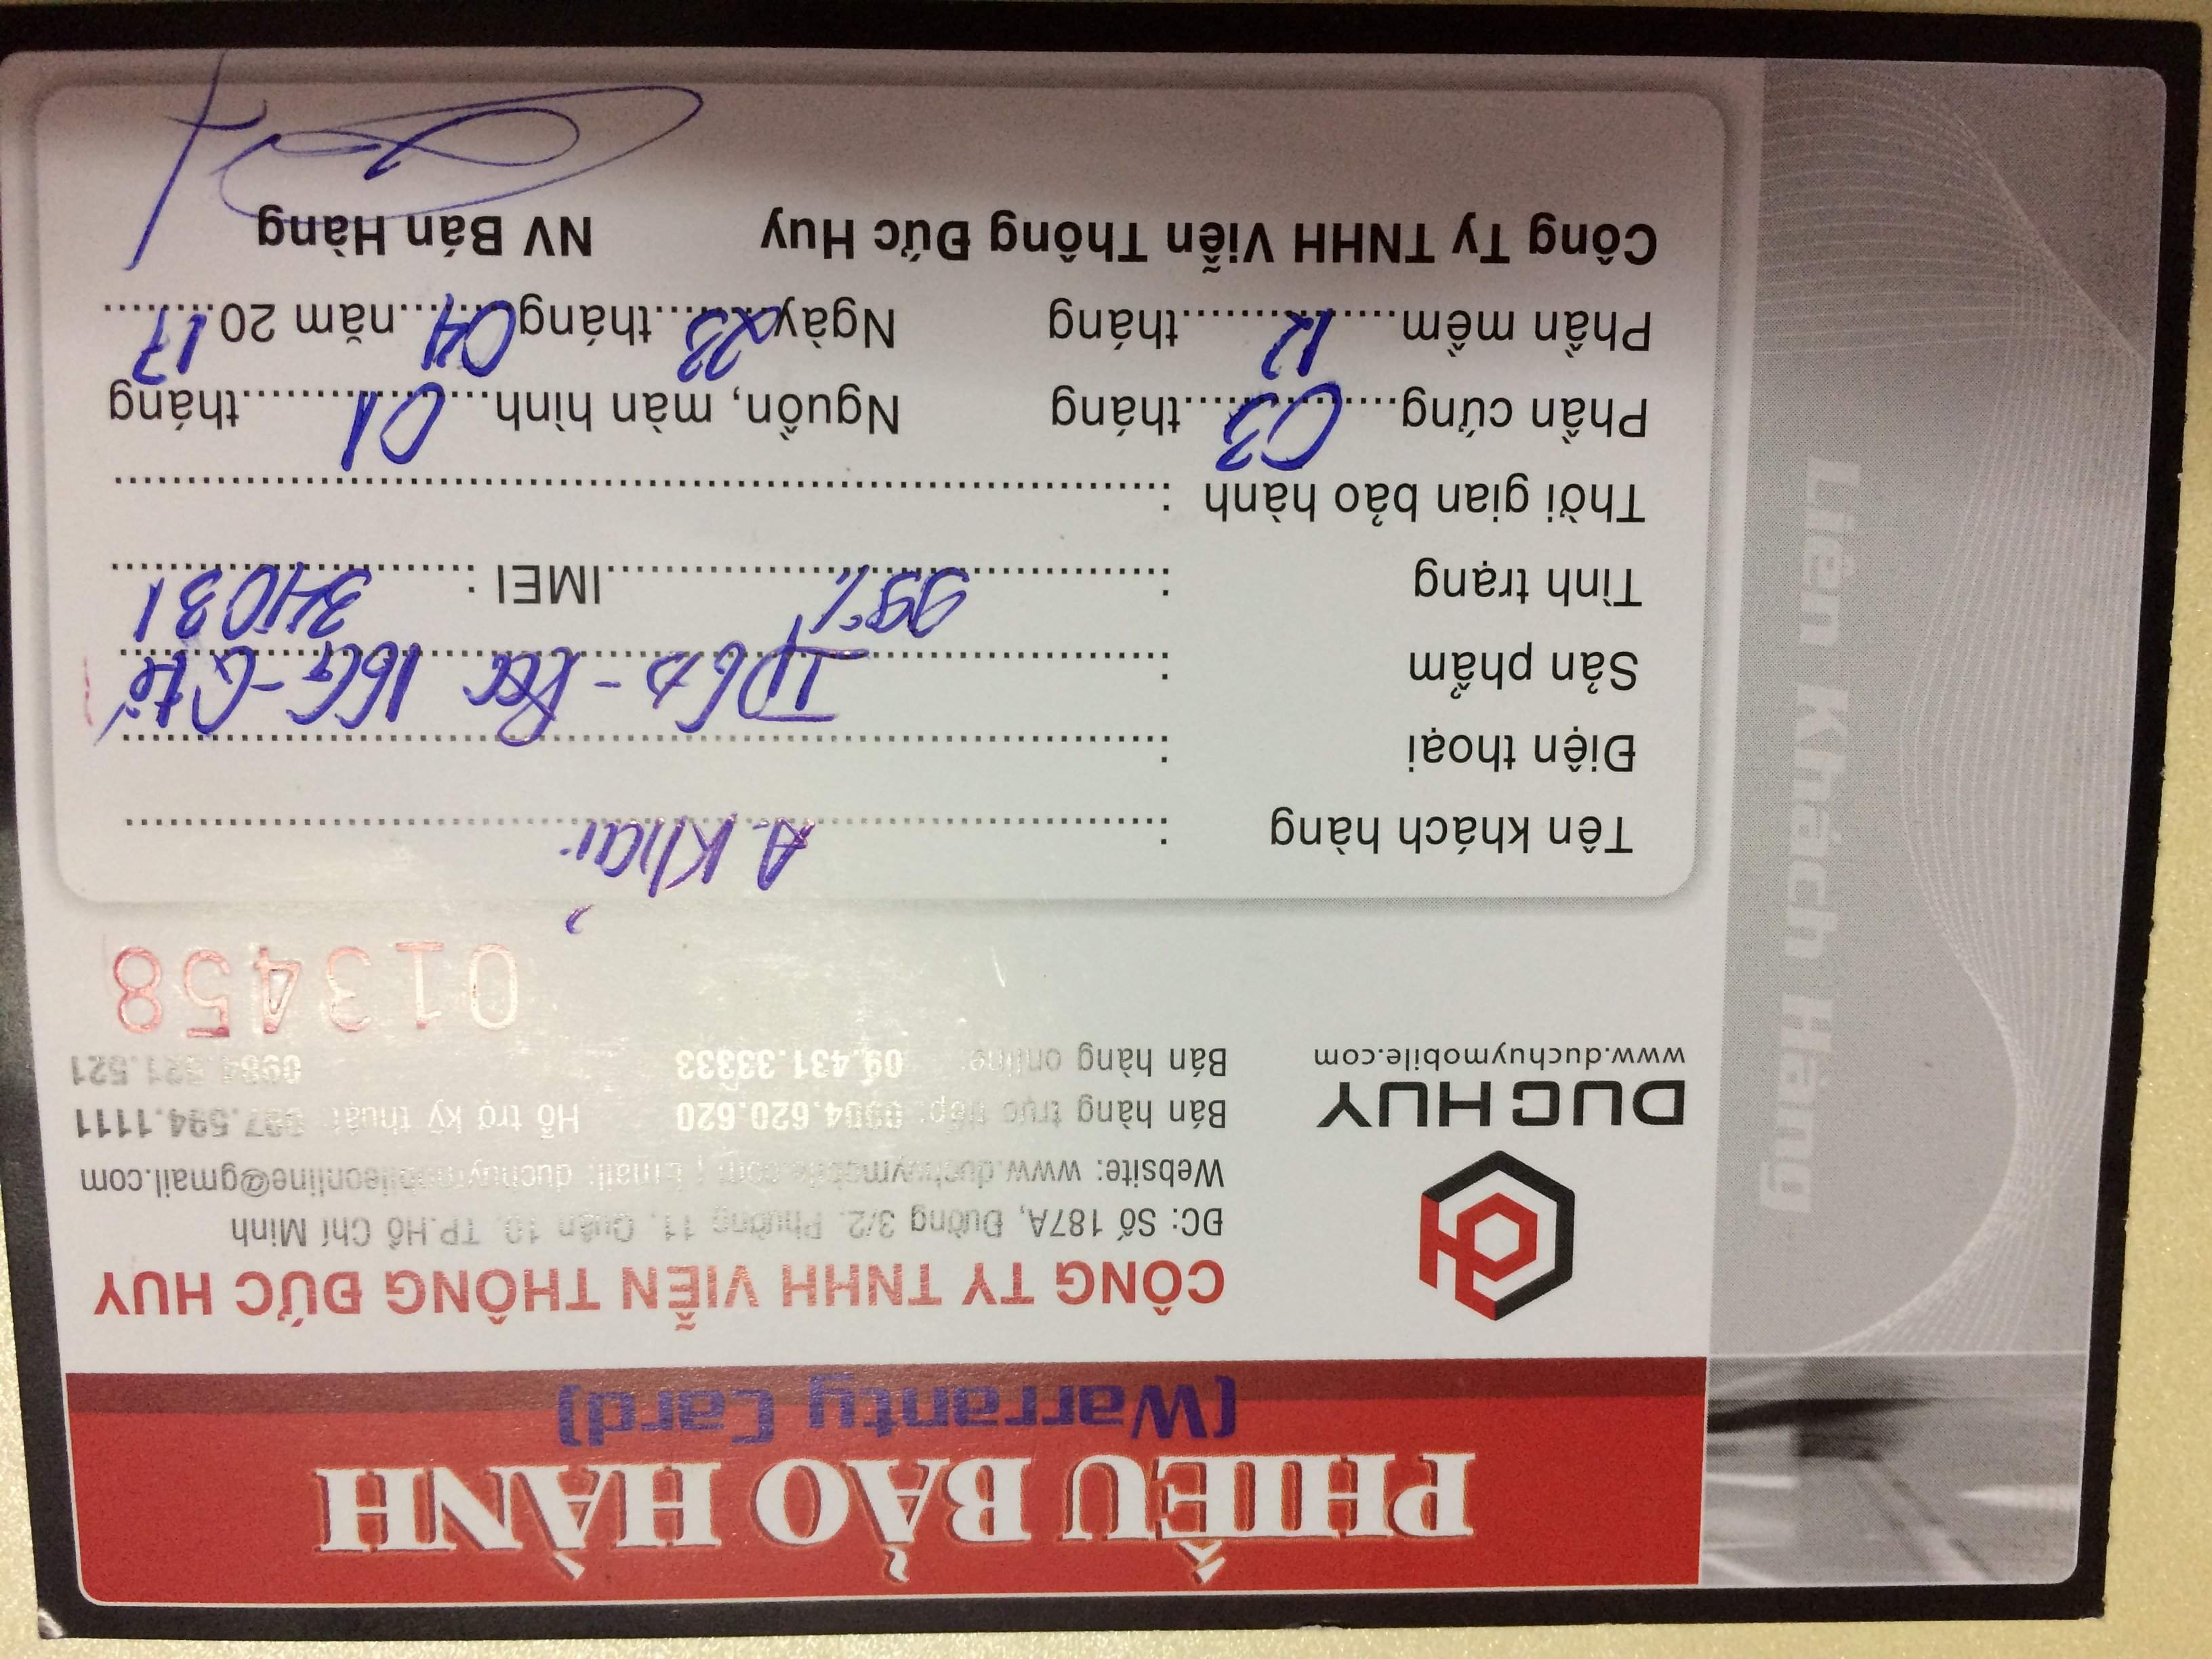 PHIẾU BẢO HÀNH
(Warranty Card)
CÔNG TY TNHH VIỄN THÔNG ĐỨC HUY
ĐC: Số 187A, Đường 3/2, Phường 11, Quận 10, TP.Hồ Chí Minh
Website: www.duchuymobile.com | Email: duchuymobileonline@gmail.com
Bán hàng trực tiếp: 0904.620.620 Hỗ trợ kỹ thuật: 097.594.1111
Bán hàng online: 09.431.33333 0984.521.521
DUCHUY
www.duchuymobile.com
013458
Tên khách hàng : A. Khải
Điện thoại :
Sản phẩm : IP6s - 16G -
Tình trạng : 99% IMEI : 34031
Thời gian bảo hành :
Phần cứng 03 tháng Nguồn, màn hình 01 tháng
Phần mềm 12 tháng Ngày 23 tháng 04 năm 2017
Công Ty TNHH Viễn Thông Đức Huy NV Bán Hàng
Liên Khách Hàng